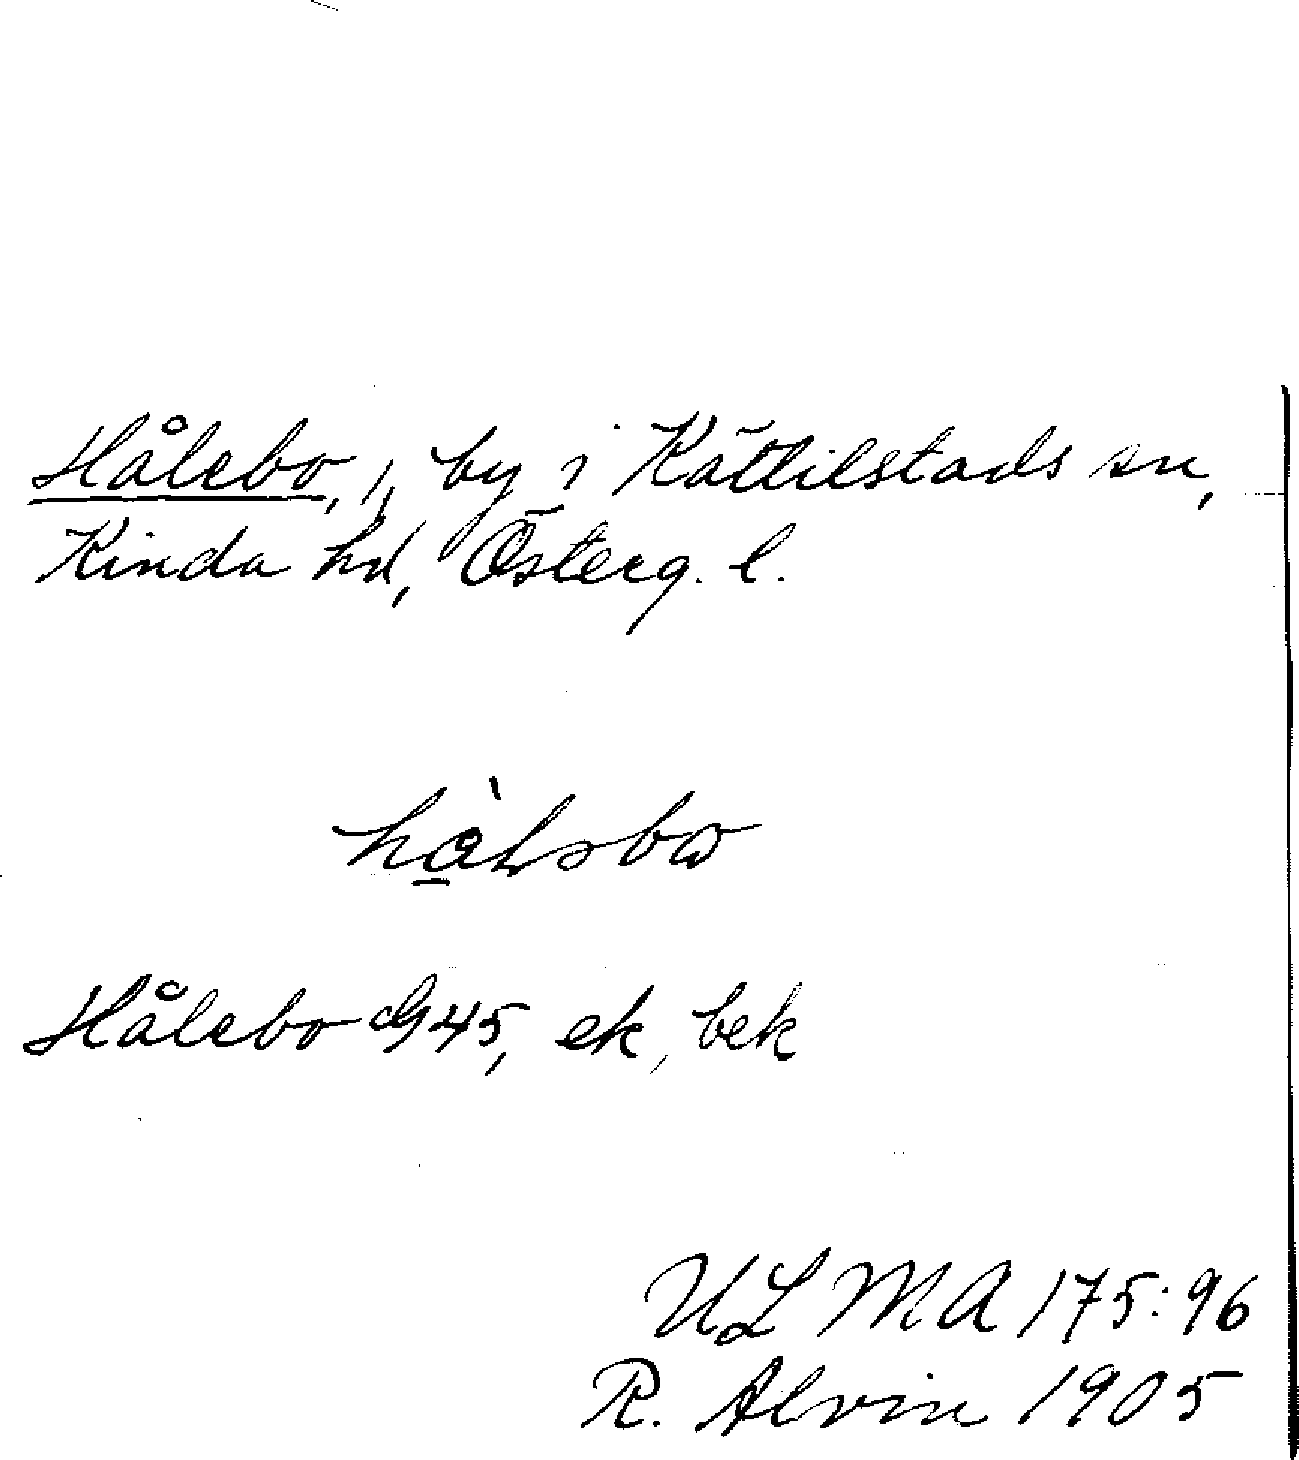 Hålebo, 1, by i Kättilstads sn,
Kinda hd, Österg. l.
Hålebo G45, ek, bek
ULMA 175:96
R. Alvin 1905